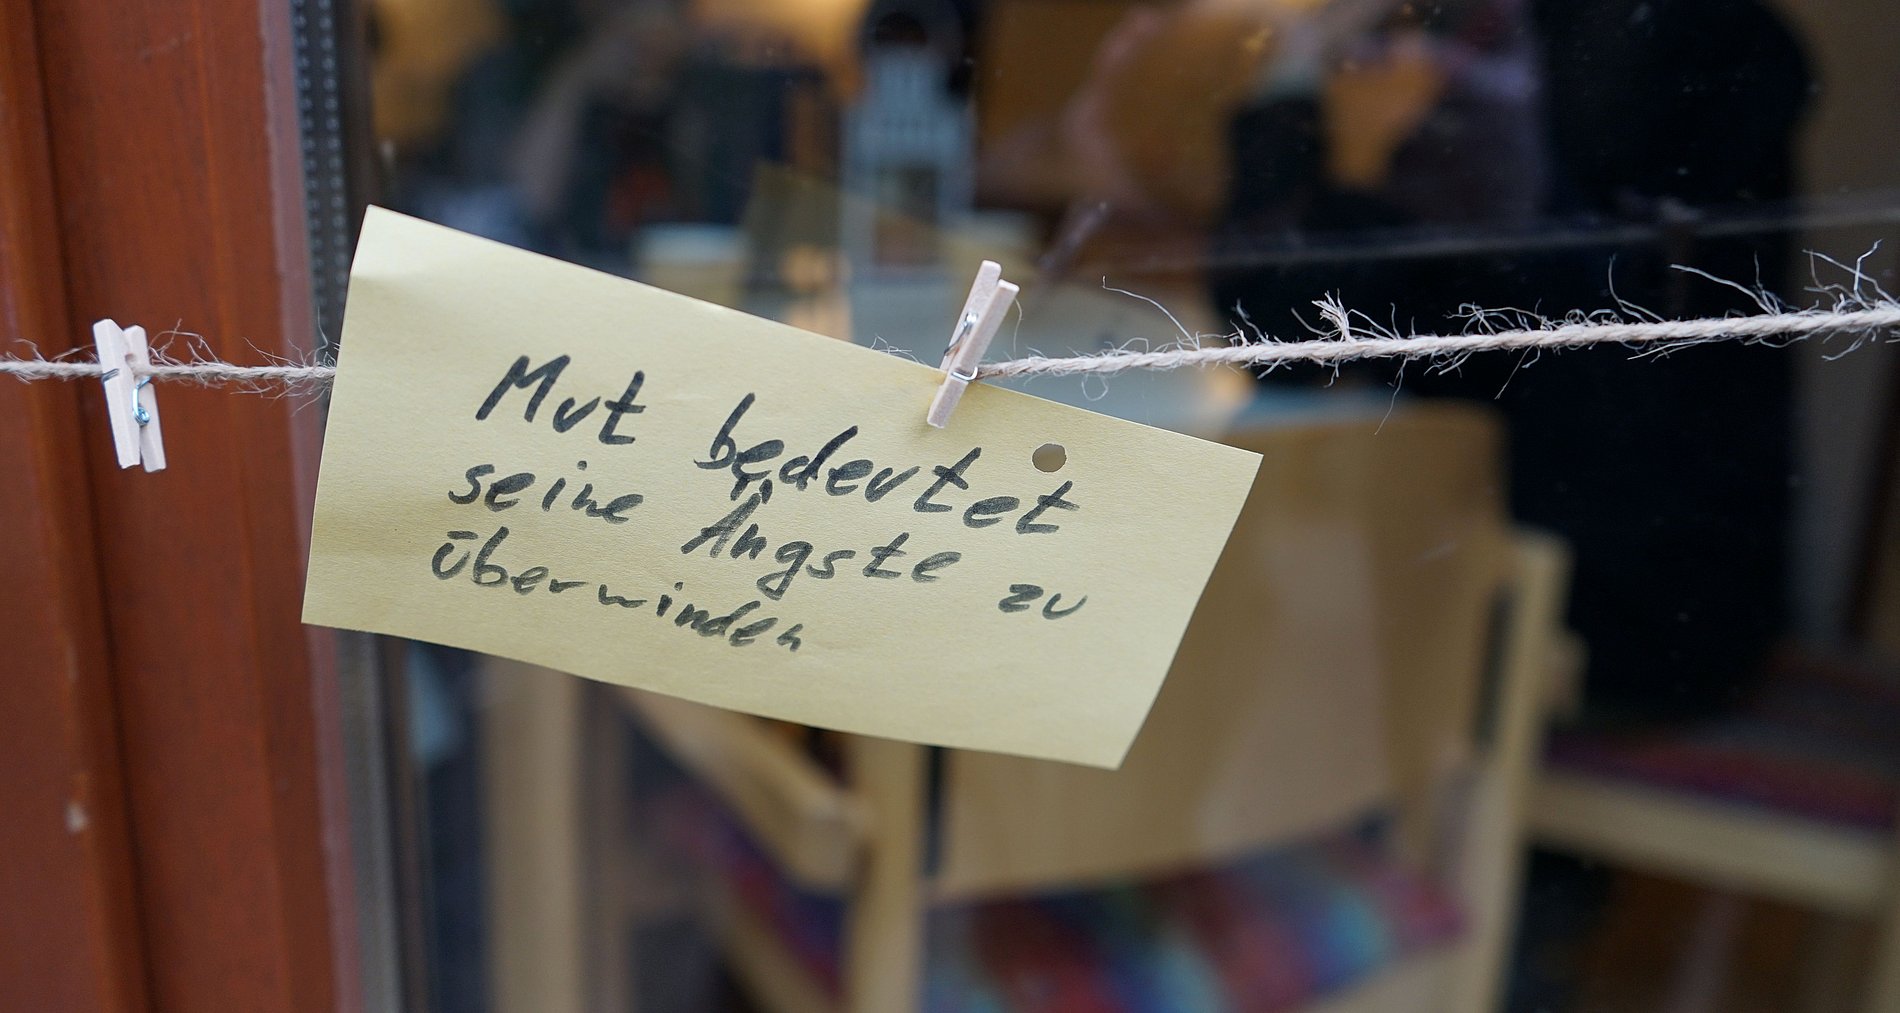 Mut bedeutet
seine Ängste zu
überwinden